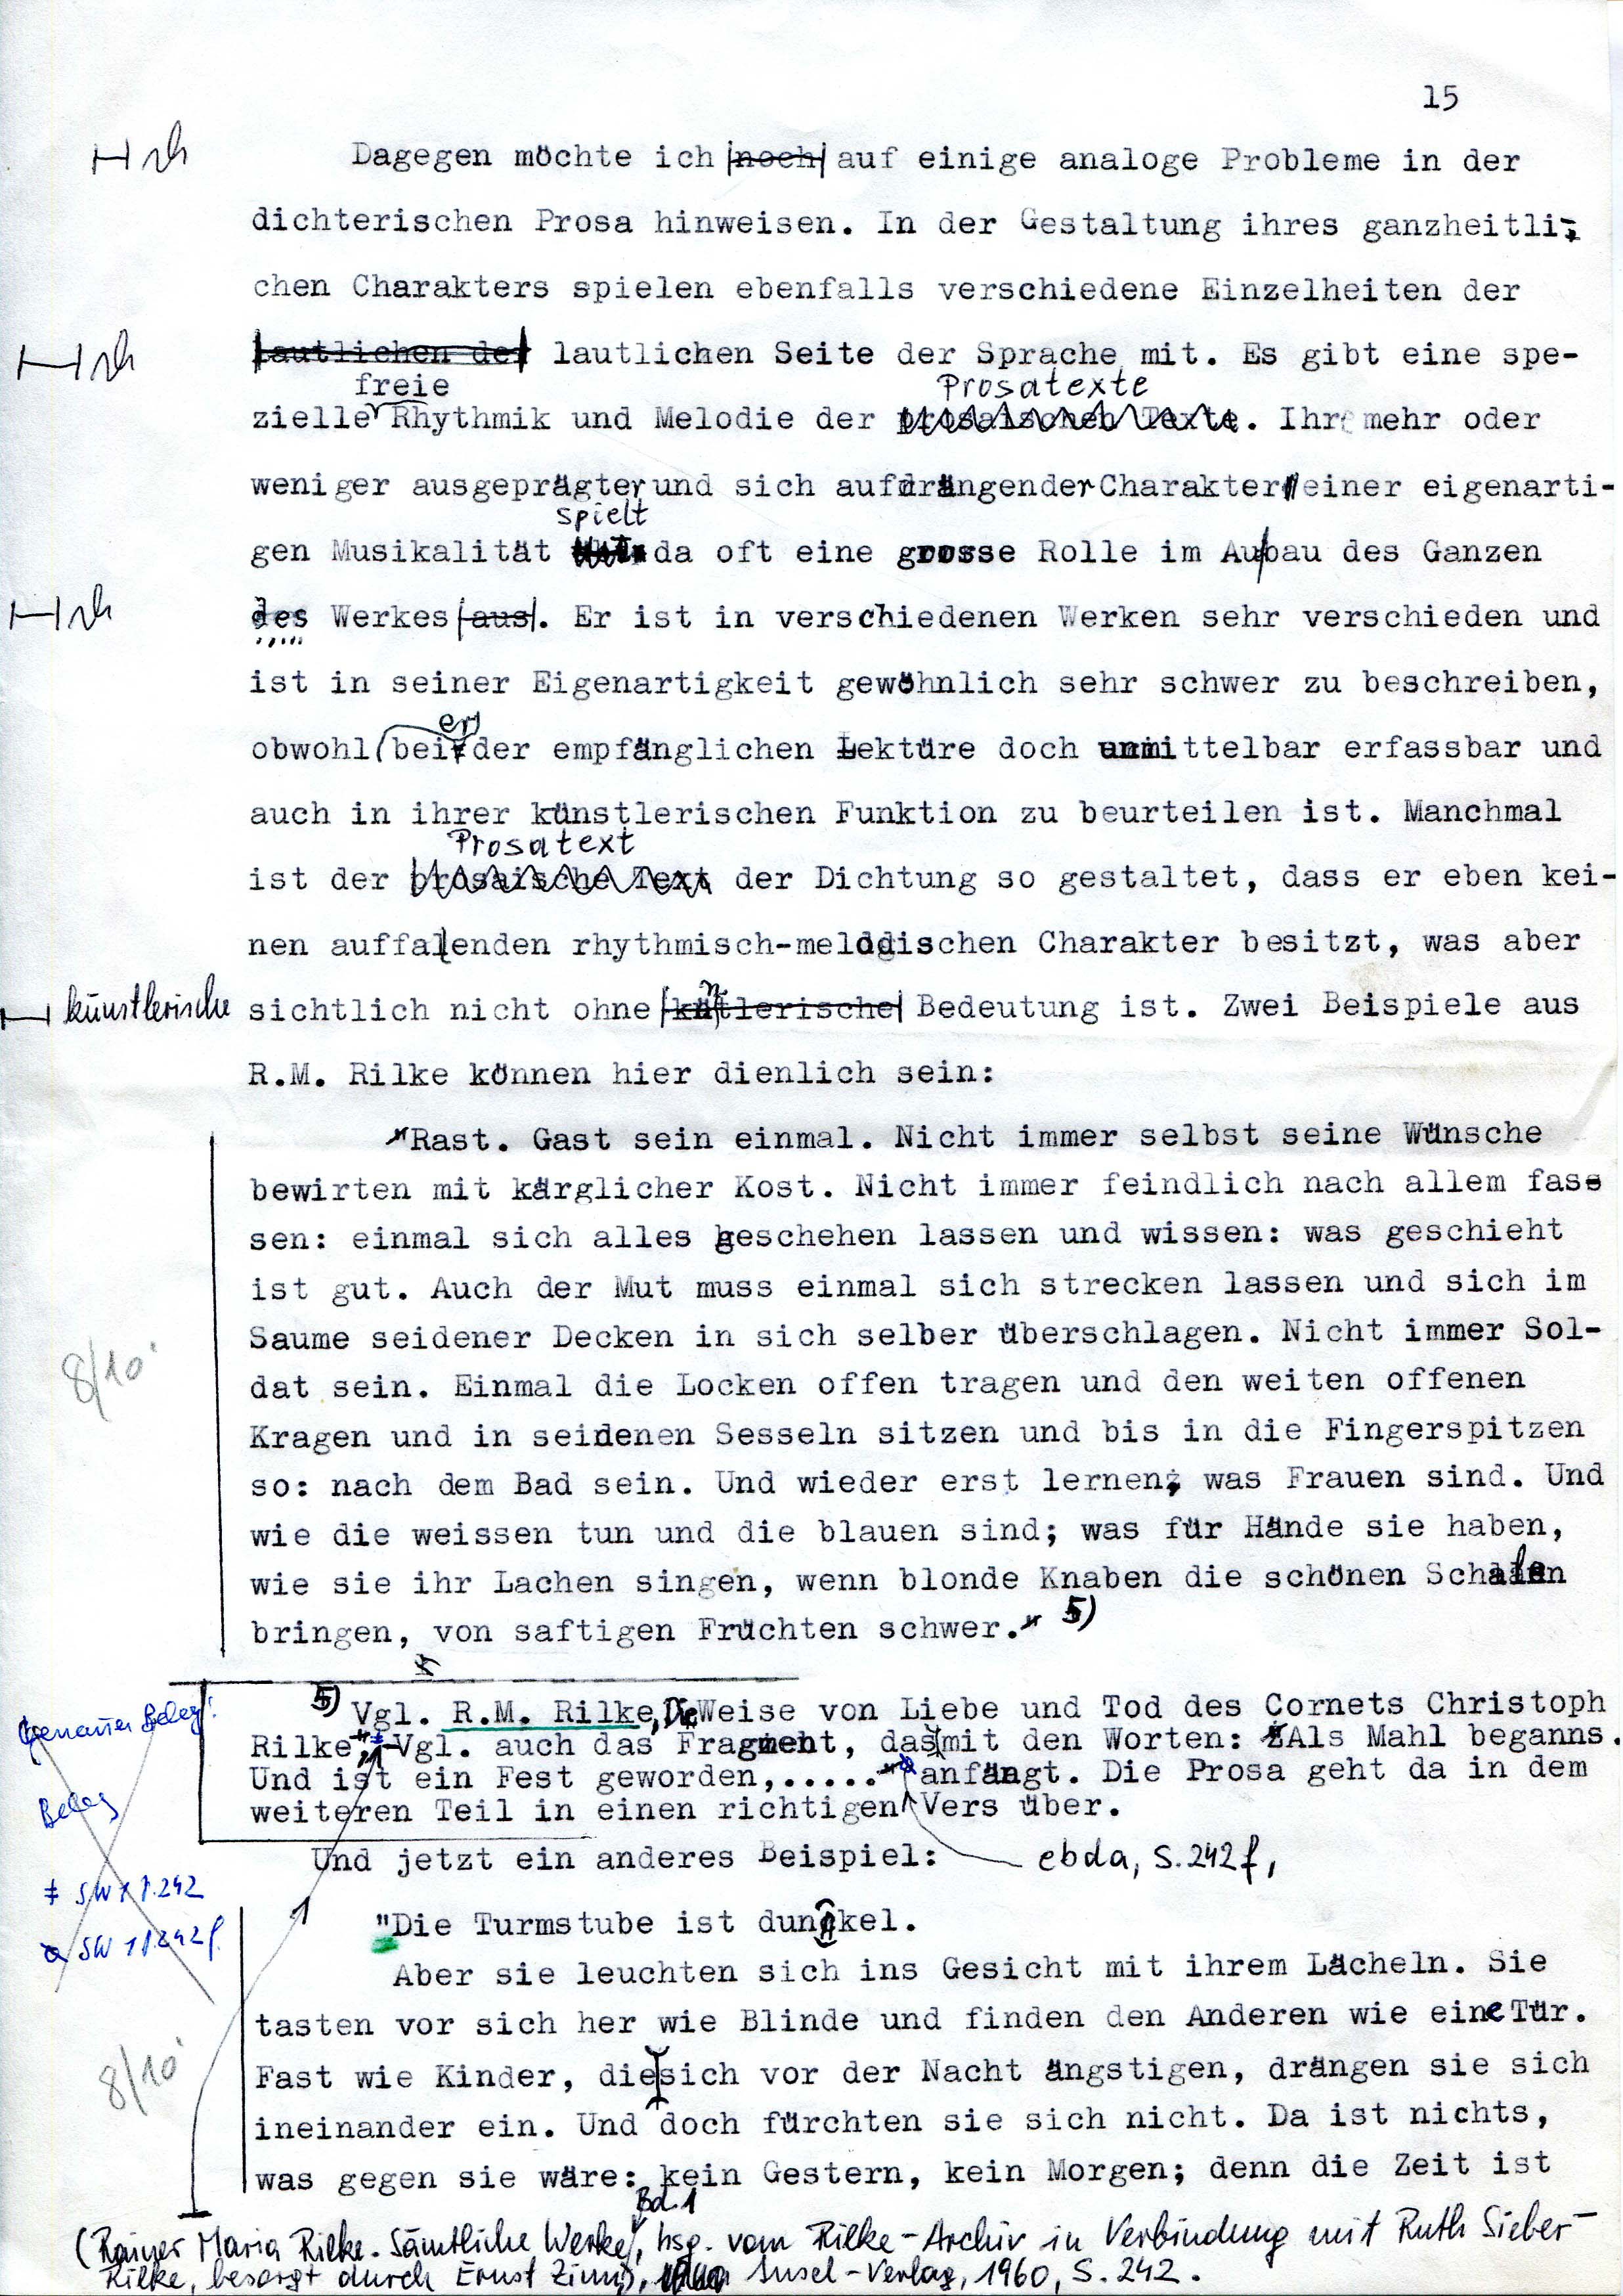 15
Dagegen möchte ich noch auf einige analoge Probleme in der
dichterischen Prosa hinweisen. In der Gestaltung ihres ganzheitli-
chen Charakters spielen ebenfalls verschiedene Einzelheiten der
lautlichen der lautlichen Seite der Sprache mit. Es gibt eine spe-
freie Prosatexte
zielle Rhythmik und Melodie der prosaischen Texte. Ihr mehr oder
weniger ausgeprägter und sich aufdrängender Charakter einer eigenarti-
spielt
gen Musikalität da oft eine grosse Rolle im Aufbau des Ganzen
des Werkes aus. Er ist in verschiedenen Werken sehr verschieden und
ist in seiner Eigenartigkeit gewöhnlich sehr schwer zu beschreiben,
er
obwohl bei der empfänglichen Lektüre doch unmittelbar erfassbar und
auch in ihrer künstlerischen Funktion zu beurteilen ist. Manchmal
Prosatext
ist der prosaische Text der Dichtung so gestaltet, dass er eben kei-
nen auffallenden rhythmisch-melodischen Charakter besitzt, was aber
künstlerische sichtlich nicht ohne küntlerische Bedeutung ist. Zwei Beispiele aus
R.M. Rilke können hier dienlich sein:
"Rast. Gast sein einmal. Nicht immer selbst seine Wünsche
bewirten mit kärglicher Kost. Nicht immer feindlich nach allem fas-
sen: einmal sich alles geschehen lassen und wissen: was geschieht
ist gut. Auch der Mut muss einmal sich strecken lassen und sich im
Saume seidener Decken in sich selber überschlagen. Nicht immer Sol-
8/10
dat sein. Einmal die Locken offen tragen und den weiten offenen
Kragen und in seidenen Sesseln sitzen und bis in die Fingerspitzen
so: nach dem Bad sein. Und wieder erst lernen, was Frauen sind. Und
wie die weissen tun und die blauen sind; was für Hände sie haben,
wie sie ihr Lachen singen, wenn blonde Knaben die schönen Schalen
bringen, von saftigen Früchten schwer." 5)
genauer Beleg!
5) Vgl. R.M. Rilke, Die Weise von Liebe und Tod des Cornets Christoph
Rilke", Vgl. auch das Fragment, das mit den Worten: "Als Mahl beganns.
Und ist ein Fest geworden,....." anfängt. Die Prosa geht da in dem
Beleg
weiteren Teil in einen richtigen Vers über.
Und jetzt ein anderes Beispiel: ebda, S.242f,
SW 1 S.242
SW 1 S.242f.
"Die Turmstube ist dunkel.
Aber sie leuchten sich ins Gesicht mit ihrem Lächeln. Sie
tasten vor sich her wie Blinde und finden den Anderen wie eine Tür.
8/10
Fast wie Kinder, die sich vor der Nacht ängstigen, drängen sie sich
ineinander ein. Und doch fürchten sie sich nicht. Da ist nichts,
was gegen sie wäre: kein Gestern, kein Morgen; denn die Zeit ist
Bd.1
(Rainer Maria Rilke. Sämtliche Werke, hsg. vom Rilke-Archiv in Verbindung mit Ruth Sieber-
Rilke, besorgt durch Ernst Zinn), Insel-Verlag, 1960, S.242.